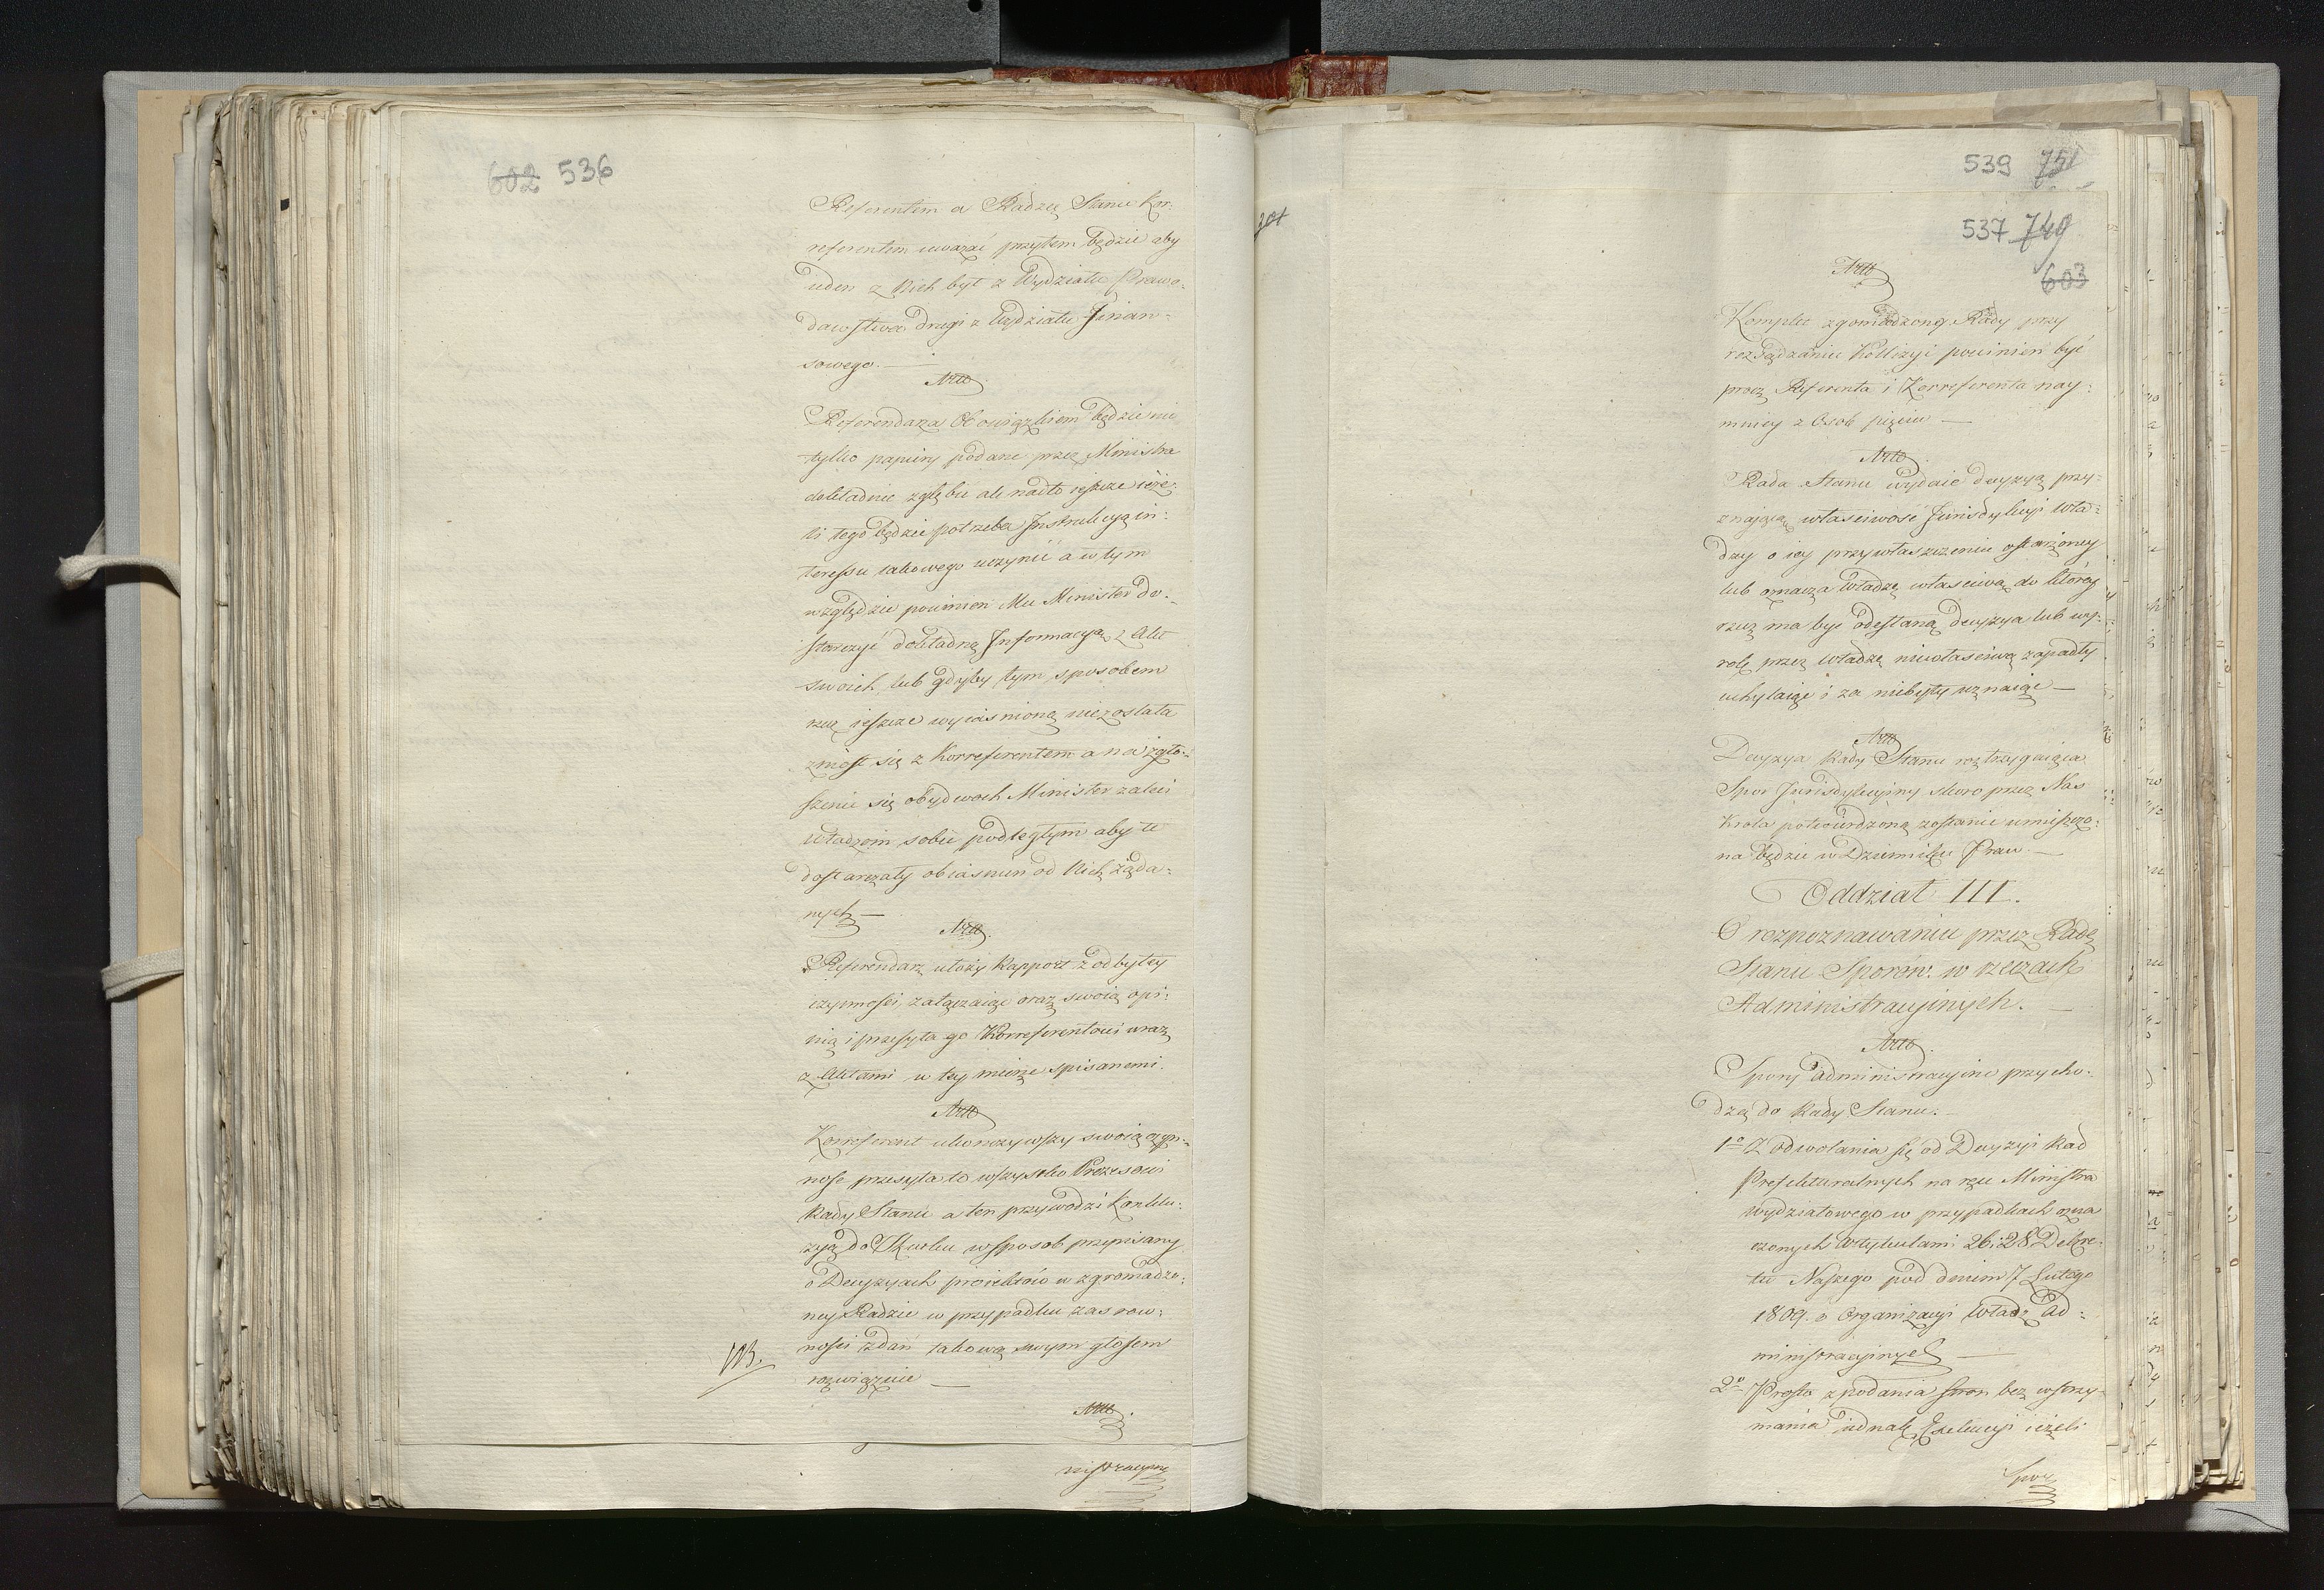 602 536
Referentem a Radzcę Stanu Kor:
referentem uważać przytem będzie aby
ieden z Nich był z Wydziału Prawo:
dawstwa drugi z Wydziału Finan:
sowego. —
Artt.
Referendarza Obowiązkiem będzie nie
tylko papiery podane przez Ministra
dokładnie zgłębić ale nadto ieszcze ieże:
li tego będzie potrzeba Instrukcyą in:
teressu takowego uczynić a w tym
względzie powinien Mu Minister do:
starczyć dokładną Informacyą z Akt
swoich, lub gdyby tym sposobem
rzecz ieszcze wyiaśnioną niezostała
zniest się z Korreferentem a na zgło:
szenie się obydwoch Minister zaleci
władzom sobie podległym aby te
dostarczały obiaśnień od Nich żąda:
nych —
Artt.
Referendarz ułoży Rapport z odbytey
czynności, załączaiąc oraz swoią opi:
nią i przesyła go Korreferentowi wraz
z Aktami w tey mierze spisanemi.
Artt
Korreferent ukonczywszy swoią czyn:
ność przesyła to wszystko Prezesowi
Rady Stanu a ten przywodzi Konklu:
zyą do Skutku w sposob przepisany
o Decyzyach proiektów w zgromadzo:
ney Radzie w przypadku zas row:
ności zdań takową swym głosem
NB.
rozwiąznie —
Artt.
nistracyine
201
539 751
537 749
603
Artt
Komplet zgomadzoney Rady przy
rozsądzaniu Kollizyi powinien być
procz Referenta i Korreferenta nay:
mniey z Osob pięciu —
Artt.
Rada Stanu wydaie decyzyą przy:
znaiącą właściwość Jurisdykcyi Wła:
dzy o iey przywłaszczenie oskarżoney
lub oznacza Władzę właściwą do którey
rzecz ma być odesłaną decyzya lub wy:
rok przez Władzę niewłaściwą zapadły
uchylaiąc i za niebyły uznaiąc —
Artt
Decyzya Rady Stanu roztrzygaiąca
Spor Jurisdykcyiny skoro przez Nas
Krola potwierdzoną zostanie umieszczo:
na będzie w Dzienniku Praw. —
Oddział III.
O rozpoznawaniu przez Radę
Stanu Sporów w rzeczach
Administracyinych. —
Artt.
Spory administracyine przycho:
dzą do Rady Stanu. —
1o Z odwołania się od Decyzyi Rad
Prefekturalnych na ręce Ministra
wydziałowego w przypadkach ozna
czonych Artykułami 26 i 28 Dekre:
tu Naszego pod dniem 7 Lutego
1809. o Organizacyi Władz Ad:
ministracyinych —
2o Prosto z podania stron bez wstrzy
mania iednak Exekucyi ieżeli
Spor